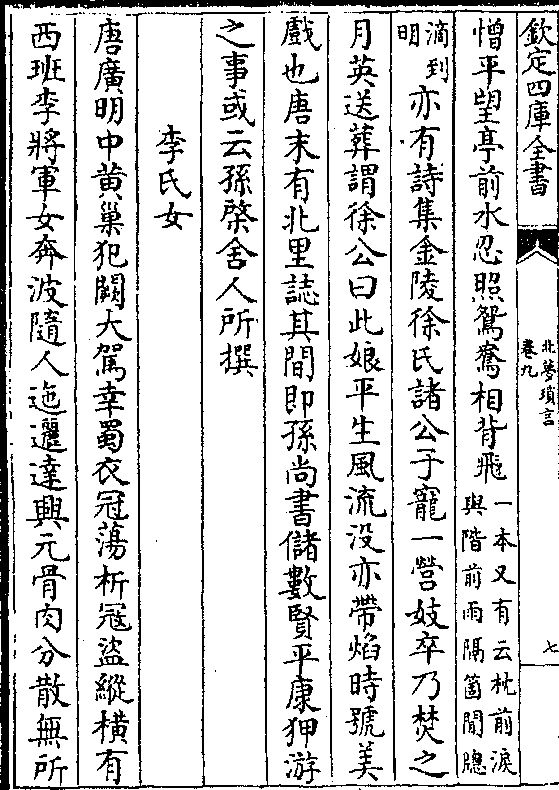 欽定四庫全書
北夢瑣言
卷九
七
憎平望亭前水忍照鴛鴦相背飛
一本又有云枕前淚
與階前雨隔箇閒牕
滴到
明
亦有詩集金陵徐氏諸公子寵一營妓卒乃焚之
月英送葬謂徐公曰此娘平生風流没亦帶焰時號美
戲也唐末有北里誌其間即孫尚書儲數賢平康狎游
之事或云孫棨舍人所撰
李氏女
唐廣明中黄巢犯闕大駕幸蜀衣冠蕩析冦盜縱橫有
西班李將軍女奔波隨人迤邐達興元骨肉分散無所